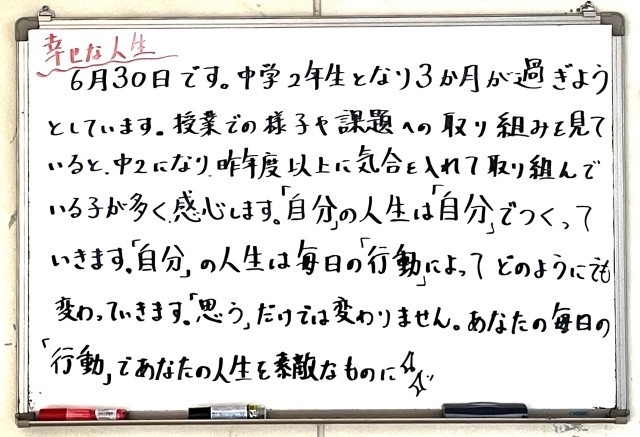 幸せな人生
6月30日です。中学2年生となり3か月が過ぎよう
としています。授業での様子や課題への取り組みを見て
いると、中2になり、昨年度以上に気合を入れて取り組んで
いる子が多く、感心します。「自分」の人生は「自分」でつくって
いきます。「自分」の人生は毎日の「行動」によってどのようにでも
変わっていきます。「思う」だけでは変わりません。あなたの毎日の
「行動」であなたの人生を素敵なものに☆☆